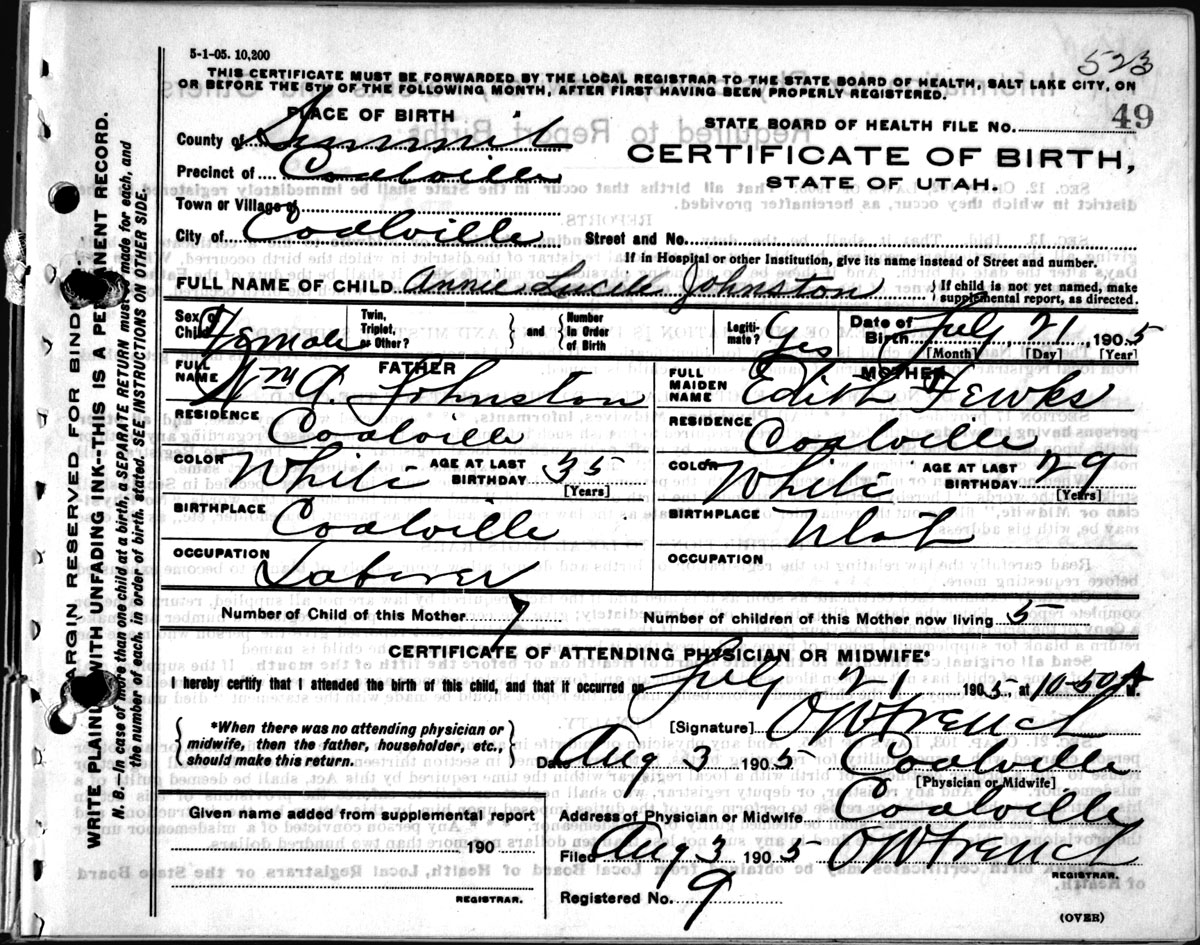 5-1-05. 10,200
523
THIS CERTIFICATE MUST BE FORWARDED BY THE LOCAL REGISTRAR TO THE STATE BOARD OF HEALTH, SALT LAKE CITY, ON
OR BEFORE THE 5TH OF THE FOLLOWING MONTH, AFTER FIRST HAVING BEEN PROPERLY REGISTERED.
PLACE OF BIRTH
STATE BOARD OF HEALTH FILE NO. 49
County of Summit
CERTIFICATE OF BIRTH,
Precinct of Coalville
STATE OF UTAH.
Town or Village of
City of Coalville Street and No.
If in Hospital or other Institution, give its name instead of Street and number.
FULL NAME OF CHILD Annie Lucile Johnston { If child is not yet named, make supplemental report, as directed.
Sex of Child Female Twin, Triplet, or Other? } and { Number in Order of Birth Legiti-mate? Yes Date of Birth July 21, 1905
[Month] [Day] [Year]
FATHER
FULL NAME Wm A. Johnston
RESIDENCE Coalville
COLOR White AGE AT LAST BIRTHDAY 35
[Years]
BIRTHPLACE Coalville
OCCUPATION Laborer
MOTHER
FULL MAIDEN NAME Edith Fewks
RESIDENCE Coalville
COLOR White AGE AT LAST BIRTHDAY 29
[Years]
BIRTHPLACE Utah
OCCUPATION
Number of Child of this Mother 7 Number of children of this Mother now living 5
CERTIFICATE OF ATTENDING PHYSICIAN OR MIDWIFE*
I hereby certify that I attended the birth of this child, and that it occurred on July 21 1905, at 10-50 A
*When there was no attending physician or
midwife, then the father, householder, etc.,
should make this return.
[Signature] O W French
Aug 3 1905 Coalville
[Physician or Midwife]
Address of Physician or Midwife Coalville
Given name added from supplemental report
190
REGISTRAR.
Filed Aug 3 1905 O W French
REGISTRAR.
Registered No. 9
(OVER)
MARGIN RESERVED FOR BINDING
WRITE PLAINLY WITH UNFADING INK--THIS IS A PERMANENT RECORD.
N. B.--In case of more than one child at a birth, a SEPARATE RETURN must be made for each, and
the number of each, in order of birth, stated. SEE INSTRUCTIONS ON OTHER SIDE.